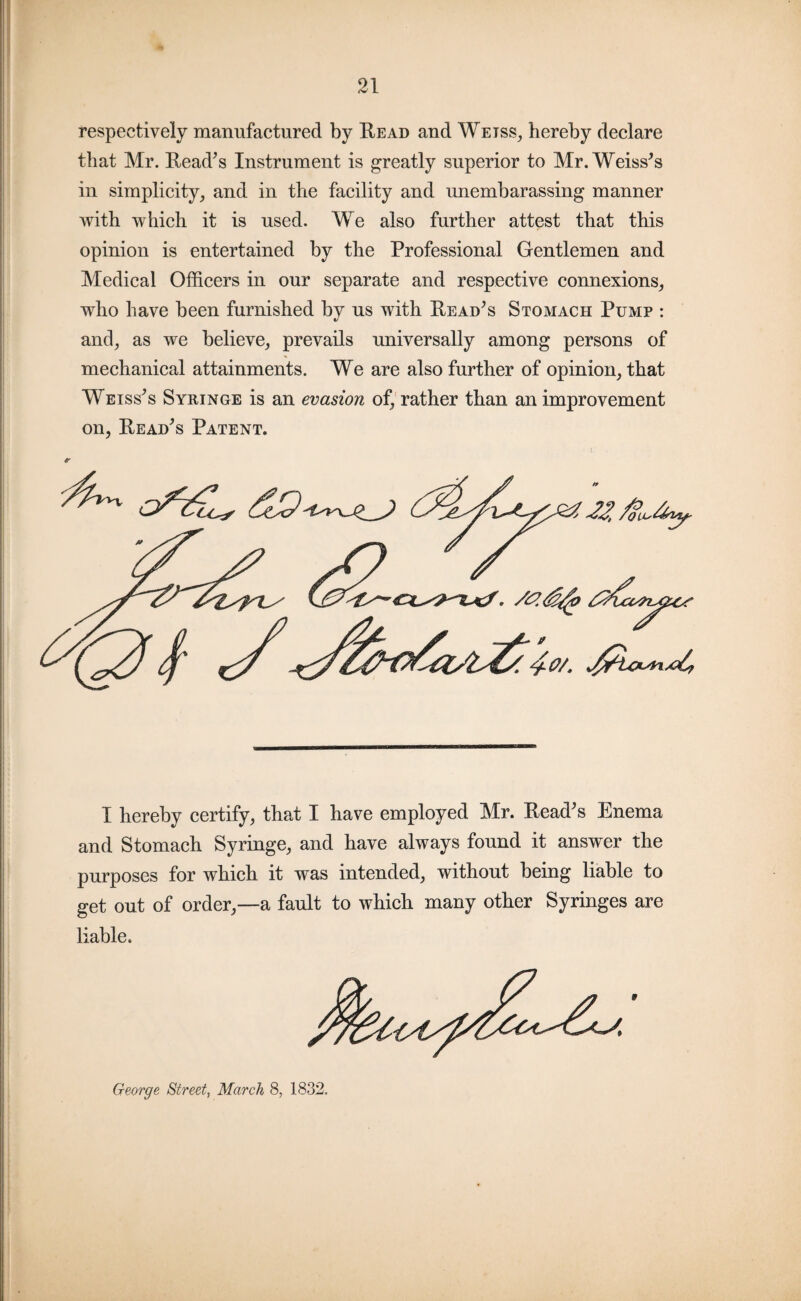 21
respectively manufactured by Read and Weiss, hereby declare
that Mr. Read's Instrument is greatly superior to Mr. Weiss's
in simplicity, and in the facility and unembarassing manner
with which it is used. We also further attest that this
opinion is entertained by the Professional Gentlemen and
Medical Officers in our separate and respective connexions,
who have been furnished by us with Read's Stomach Pump :
and, as we believe, prevails universally among persons of
mechanical attainments. We are also further of opinion, that
Weiss's Syringe is an evasion of, rather than an improvement
on, Read's Patent.
22,
J 401. Strand
I hereby certify, that I have employed Mr. Read's Enema
and Stomach Syringe, and have always found it answer the
purposes for which it was intended, without being liable to
get out of order,—a fault to which many other Syringes are
liable.
George Street, March 8, 1832.